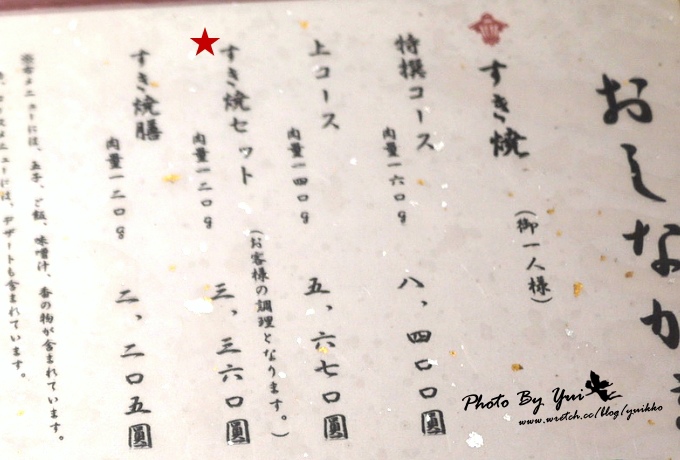 おしなが
すき焼
(御一人様)
特撰コース
肉量一六〇g
八、四〇〇圓
上コース
肉量一四〇g
五、六七〇圓
すき焼セット
肉量一二〇g
(お客様の調理となります。)
三、三六〇圓
すき焼膳
肉量一二〇g
二、二〇五圓
メニューには、玉子、ご飯、味噌汁、香の物が含まれています。
には、デザートも含まれています。
Photo By Yui
www.wretch.cc/blog/yuikko